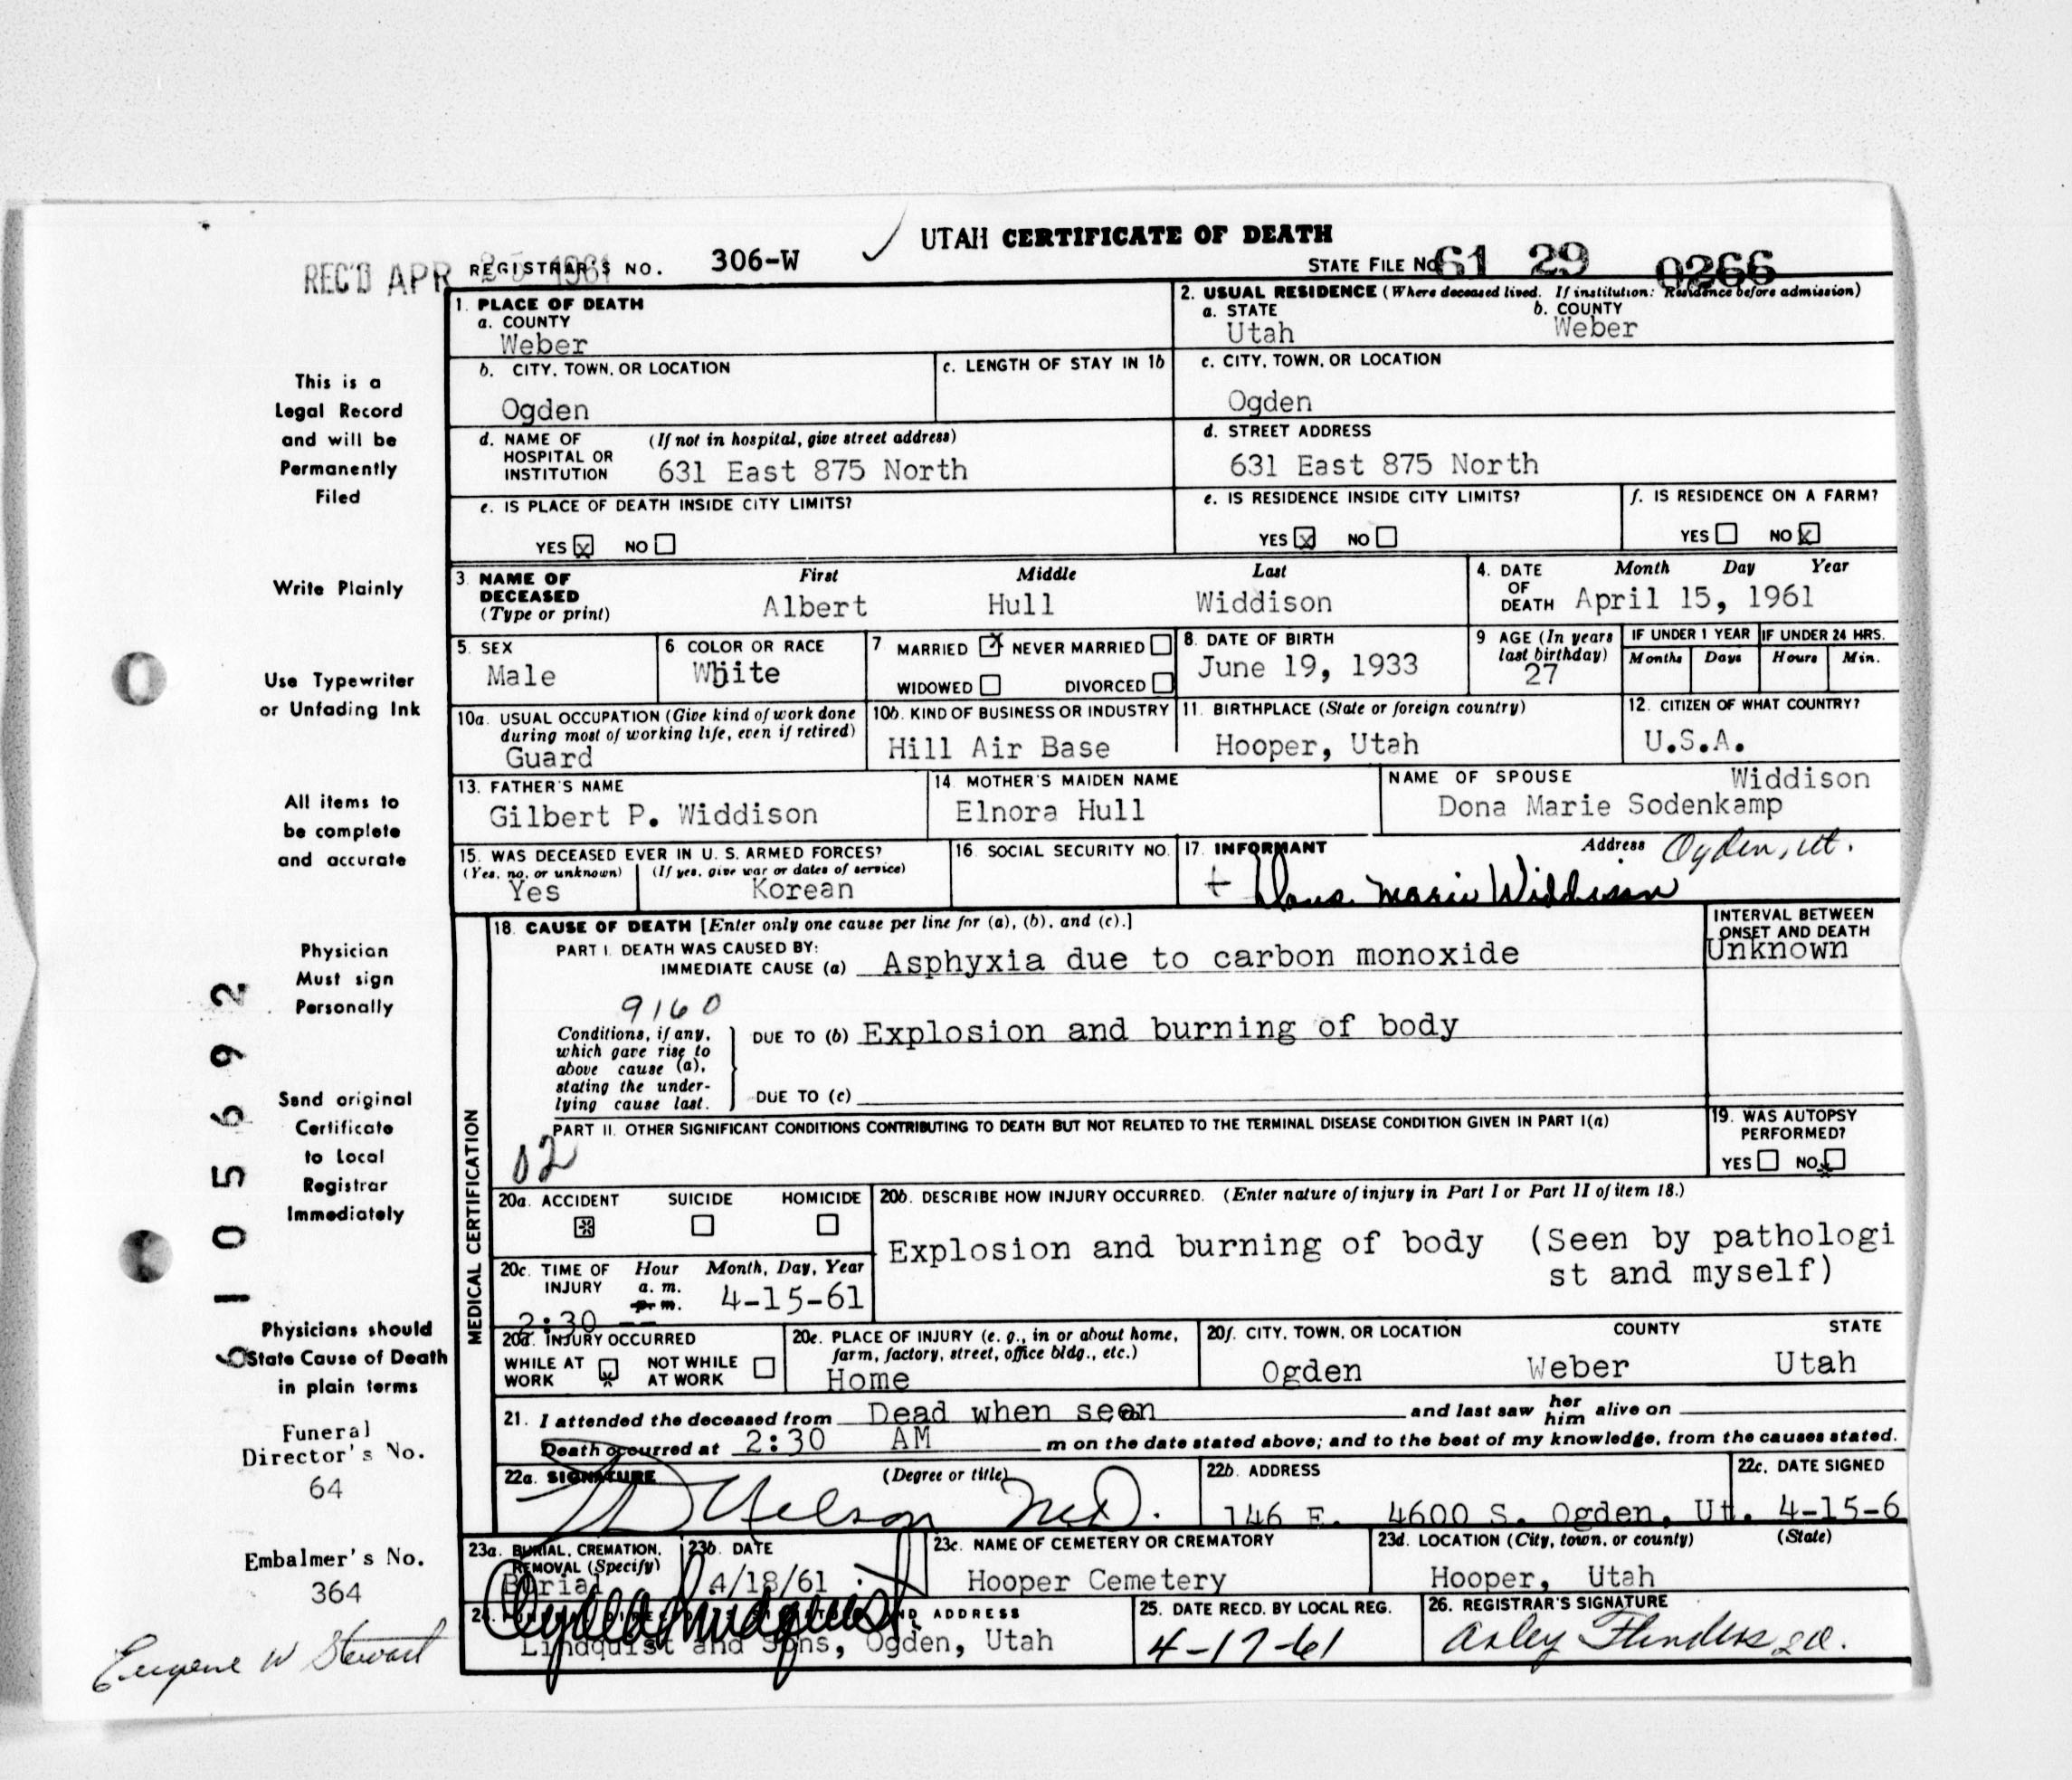 UTAH CERTIFICATE OF DEATH
REC'D APR 25 1961 REGISTRAR'S NO. 306-W
STATE FILE NO. 61 29 0266
1. PLACE OF DEATH
a. COUNTY
Weber
2. USUAL RESIDENCE (Where deceased lived. If institution: Residence before admission)
a. STATE b. COUNTY
Utah Weber
b. CITY, TOWN, OR LOCATION
Ogden
c. LENGTH OF STAY IN 1b
c. CITY, TOWN, OR LOCATION
Ogden
d. NAME OF HOSPITAL OR INSTITUTION (If not in hospital, give street address)
631 East 875 North
d. STREET ADDRESS
631 East 875 North
e. IS PLACE OF DEATH INSIDE CITY LIMITS?
YES x NO
e. IS RESIDENCE INSIDE CITY LIMITS?
YES x NO
f. IS RESIDENCE ON A FARM?
YES NO x
3. NAME OF DECEASED (Type or print)
First Middle Last
Albert Hull Widdison
4. DATE OF DEATH Month Day Year
April 15, 1961
5. SEX
Male
6. COLOR OR RACE
White
7 MARRIED x NEVER MARRIED
WIDOWED DIVORCED
8. DATE OF BIRTH
June 19, 1933
9 AGE (In years last birthday)
27
IF UNDER 1 YEAR IF UNDER 24 HRS.
Months Days Hours Min.
10a. USUAL OCCUPATION (Give kind of work done during most of working life, even if retired)
Guard
10b. KIND OF BUSINESS OR INDUSTRY
Hill Air Base
11. BIRTHPLACE (State or foreign country)
Hooper, Utah
12. CITIZEN OF WHAT COUNTRY?
U.S.A.
13. FATHER'S NAME
Gilbert P. Widdison
14. MOTHER'S MAIDEN NAME
Elnora Hull
NAME OF SPOUSE Widdison
Dona Marie Sodenkamp
15. WAS DECEASED EVER IN U. S. ARMED FORCES?
(Yes, no, or unknown) (If yes, give war or dates of service)
Yes Korean
16. SOCIAL SECURITY NO.
17. INFORMANT Address Ogden, Ut.
Dona Marie Widdison
MEDICAL CERTIFICATION
18. CAUSE OF DEATH [Enter only one cause per line for (a), (b), and (c).]
PART I. DEATH WAS CAUSED BY:
IMMEDIATE CAUSE (a) Asphyxia due to carbon monoxide
INTERVAL BETWEEN ONSET AND DEATH
Unknown
9160
Conditions, if any, which gave rise to above cause (a), stating the underlying cause last.
DUE TO (b) Explosion and burning of body
DUE TO (c)
PART II. OTHER SIGNIFICANT CONDITIONS CONTRIBUTING TO DEATH BUT NOT RELATED TO THE TERMINAL DISEASE CONDITION GIVEN IN PART I(a)
02
19. WAS AUTOPSY PERFORMED?
YES NO x
20a. ACCIDENT SUICIDE HOMICIDE
20b. DESCRIBE HOW INJURY OCCURRED. (Enter nature of injury in Part I or Part II of item 18.)
Explosion and burning of body (Seen by pathologi
st and myself)
20c. TIME OF INJURY Hour a. m. p. m. Month, Day, Year
2:30 -- 4-15-61
20d. INJURY OCCURRED
WHILE AT WORK x NOT WHILE AT WORK
20e. PLACE OF INJURY (e. g., in or about home, farm, factory, street, office bldg., etc.)
Home
20f. CITY, TOWN, OR LOCATION COUNTY STATE
Ogden Weber Utah
21. I attended the deceased from Dead when seen and last saw her him alive on
Death occurred at 2:30 AM m on the date stated above; and to the best of my knowledge, from the causes stated.
22a. SIGNATURE (Degree or title)
Nelson M.D.
22b. ADDRESS
146 E. 4600 S. Ogden, Ut.
22c. DATE SIGNED
4-15-6
23a. BURIAL, CREMATION, REMOVAL (Specify)
Burial
23b. DATE
4/18/61
23c. NAME OF CEMETERY OR CREMATORY
Hooper Cemetery
23d. LOCATION (City, town, or county) (State)
Hooper, Utah
24. ADDRESS
Lindquist and Sons, Ogden, Utah
25. DATE RECD. BY LOCAL REG.
4-17-61
26. REGISTRAR'S SIGNATURE
This is a
Legal Record
and will be
Permanently
Filed
Write Plainly
Use Typewriter
or Unfading Ink
All items to
be complete
and accurate
Physician
Must sign
Personally
Send original
Certificate
to Local
Registrar
Immediately
Physicians should
State Cause of Death
in plain terms
Funeral
Director's No.
64
Embalmer's No.
364
Eugene W Stewart
6105692